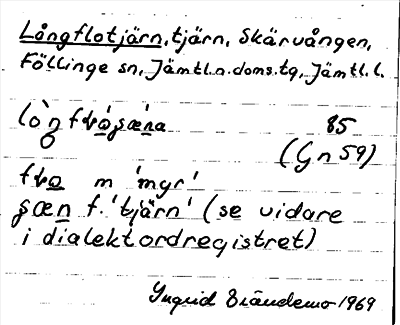 Långflotjärn, tjärn, Skärvången,
Föllinge sn, Jämtl.n.doms.tg, Jämtl.l.
85
(Gn 59)
m 'myr'
f. 'tjärn' (se vidare
i dialektordregistret)
Ingrid Brändemo 1969